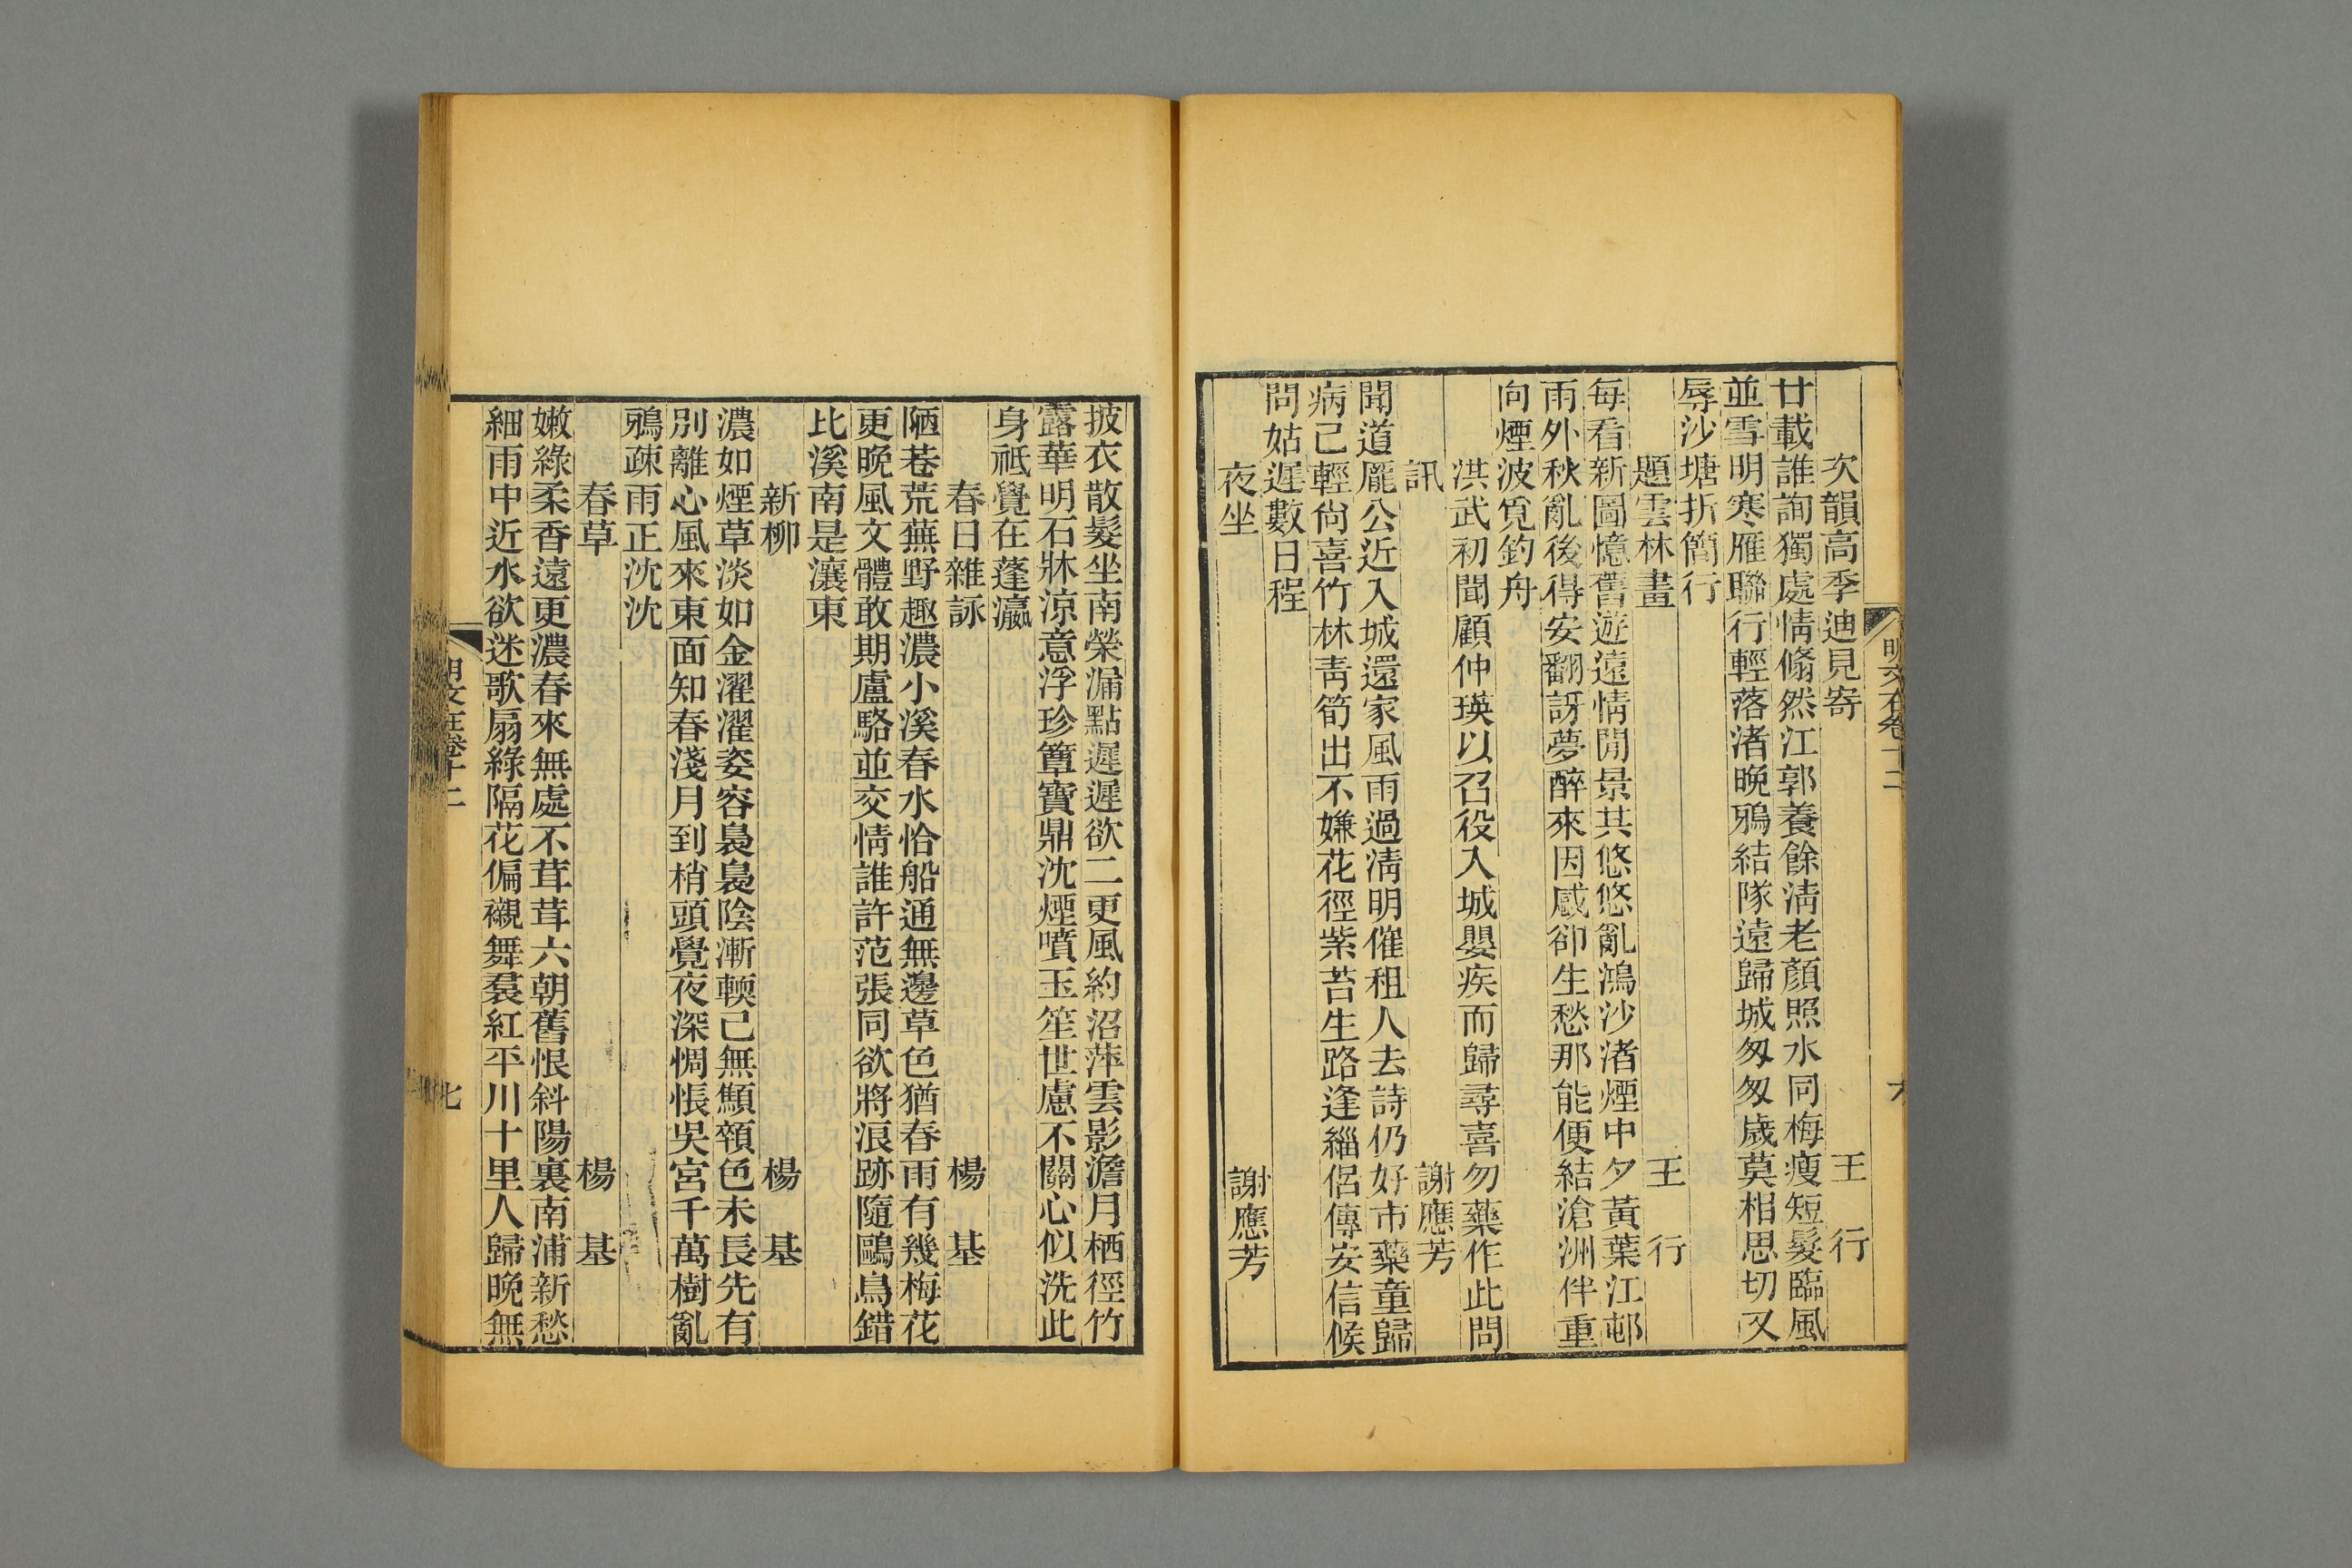 次韻高季迪見寄 王行
廿載誰詢獨處情翛然江郭養餘淸老顏照水同梅瘦短髮臨風
並雪明寒雁聯行輕落渚晚鴉結隊遠歸城匆匆歲莫相思切又
辱沙塘折簡行
題雲林畫 王行
每看新圖憶舊遊遠情閒景共悠悠亂鴻沙渚煙中夕黃葉江邨
雨外秋亂後得安翻訝夢醉來因感卻生愁那能便結滄洲伴重
向煙波覓釣舟
洪武初聞顧仲瑛以召役入城嬰疾而歸尋喜勿藥作此問
訊 謝應芳
聞道龐公近入城還家風雨過淸明催租人去詩仍好市藥童歸
病已輕尙喜竹林靑筍出不嫌花徑紫苔生路逢緇侶傳安信候
問姑遲數日程
夜坐 謝應芳
明文在卷十二
披衣散髮坐南榮漏點遲遲欲二更風約沼萍雲影澹月栖徑竹
露華明石牀涼意浮珍簟寶鼎沈煙噴玉笙世慮不關心似洗此
身祗覺在蓬瀛
春日雜詠 楊基
陋巷荒蕪野趣濃小溪春水恰船通無邊草色猶春雨有幾梅花
更晚風文體敢期盧駱並交情誰許范張同欲將浪跡隨鷗鳥錯
比溪南是瀼東
新柳 楊基
濃如煙草淡如金濯濯姿容裊裊陰漸輭已無顦顇色未長先有
別離心風來東面知春淺月到梢頭覺夜深惆悵吳宮千萬樹亂
鴉疎雨正沈沈
春草 楊基
嫩綠柔香遠更濃春來無處不茸茸六朝舊恨斜陽裏南浦新愁
細雨中近水欲迷歌扇綠隔花偏襯舞裠紅平川十里人歸晚無
明文在卷十二 七